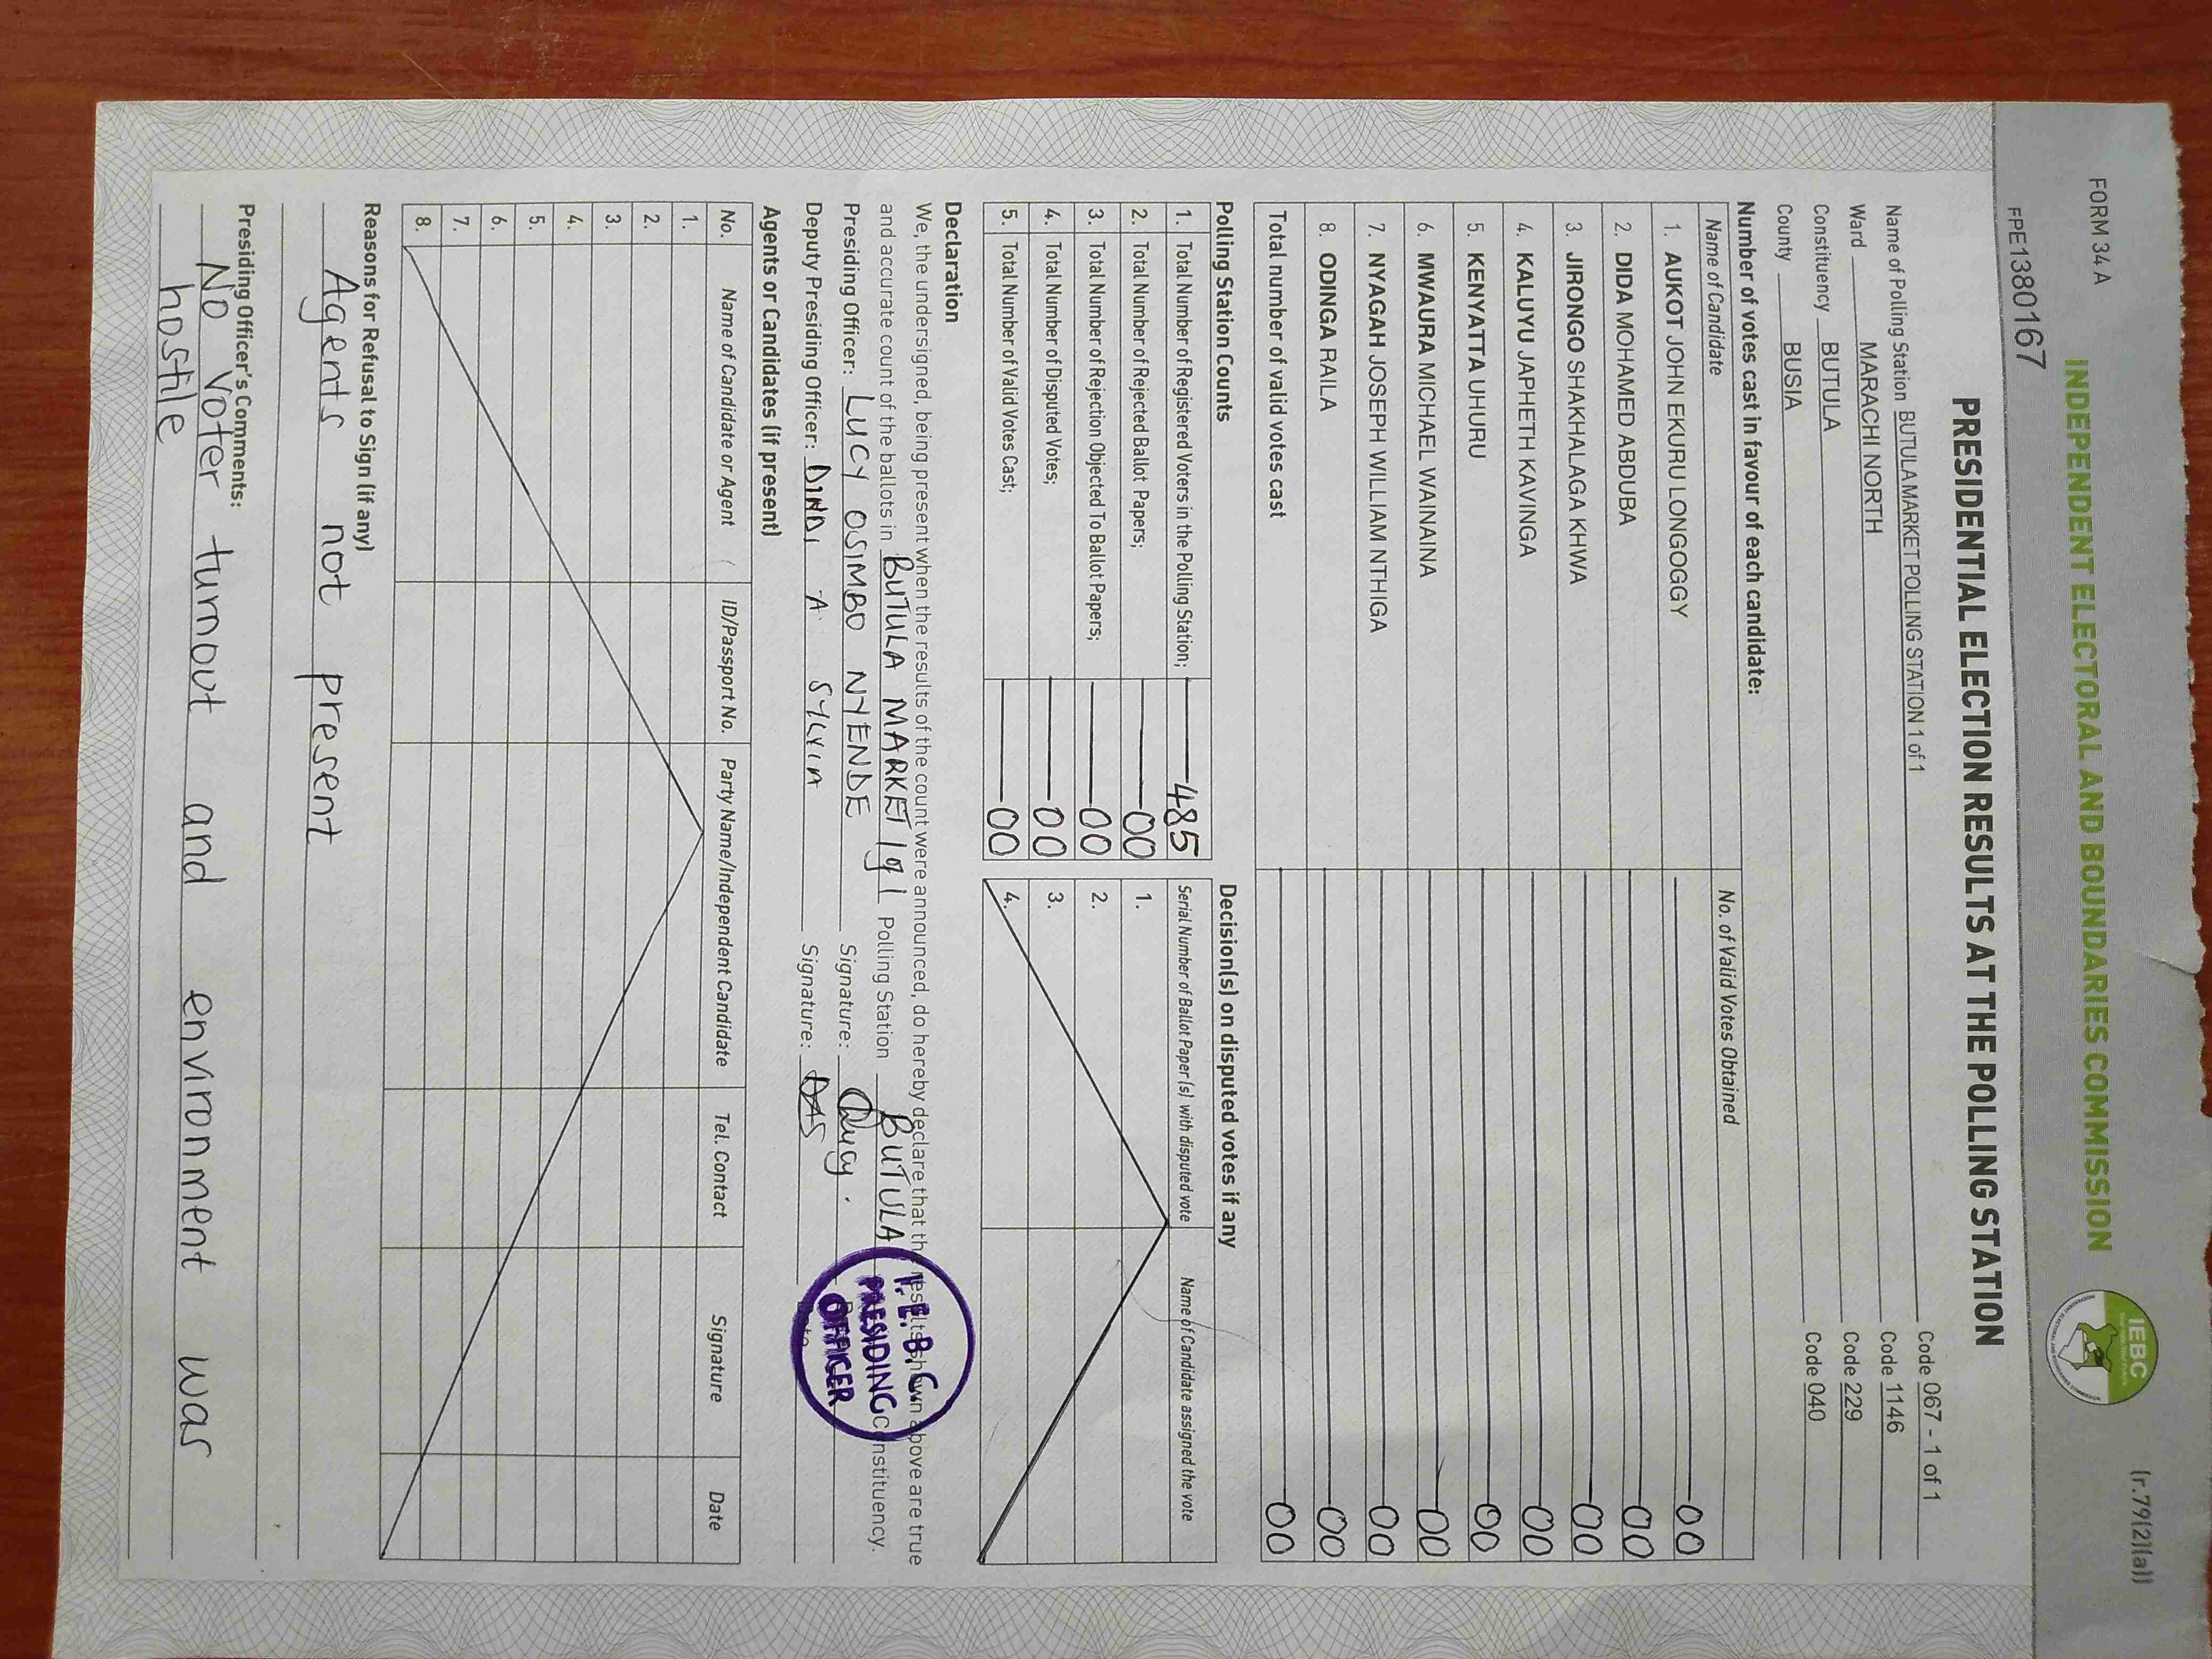 FORM 34 A
(r.79(2)(a))
INDEPENDENT ELECTORAL AND BOUNDARIES COMMISSION
IEBC
FPE1380167
PRESIDENTIAL ELECTION RESULTS AT THE POLLING STATION
Name of Polling Station BUTULA MARKET POLLING STATION 1 of 1 Code 067 - 1 of 1
Ward MARACHI NORTH Code 1146
Constituency BUTULA Code 229
County BUSIA Code 040
Number of votes cast in favour of each candidate:
Name of Candidate No. of Valid Votes Obtained
1. AUKOT JOHN EKURU LONGOGGY 00
2. DIDA MOHAMED ABDUBA 00
3. JIRONGO SHAKHALAGA KHWA 00
4. KALUYU JAPHETH KAVINGA 00
5. KENYATTA UHURU 00
6. MWAURA MICHAEL WAINAINA 00
7. NYAGAH JOSEPH WILLIAM NTHIGA 00
8. ODINGA RAILA 00
Total number of valid votes cast 00
Polling Station Counts
1. Total Number of Registered Voters in the Polling Station; 485
2. Total Number of Rejected Ballot Papers; 00
3. Total Number of Rejection Objected To Ballot Papers; 00
4. Total Number of Disputed Votes; 00
5. Total Number of Valid Votes Cast; 00
Decision(s) on disputed votes if any
Serial Number of Ballot Paper (s) with disputed vote Name of Candidate assigned the vote
1.
2.
3.
4.
Declaration
We, the undersigned, being present when the results of the count were announced, do hereby declare that the results shown above are true
and accurate count of the ballots in BUTULA MARKET 1 of 1 Polling Station BUTULA Constituency.
Presiding Officer: LUCY OSIMBO NYENDE Signature: Lucy.
Deputy Presiding Officer: DINDI A SYLVIA Signature: DAS Date
I.E.B.C
PRESIDING
OFFICER
Agents or Candidates (if present)
No. Name of Candidate or Agent ID/Passport No. Party Name/Independent Candidate Tel. Contact Signature Date
1.
2.
3.
4.
5.
6.
7.
8.
Reasons for Refusal to Sign (if any)
Agents not present
Presiding Officer's Comments:
No voter turnout and environment was
hostile